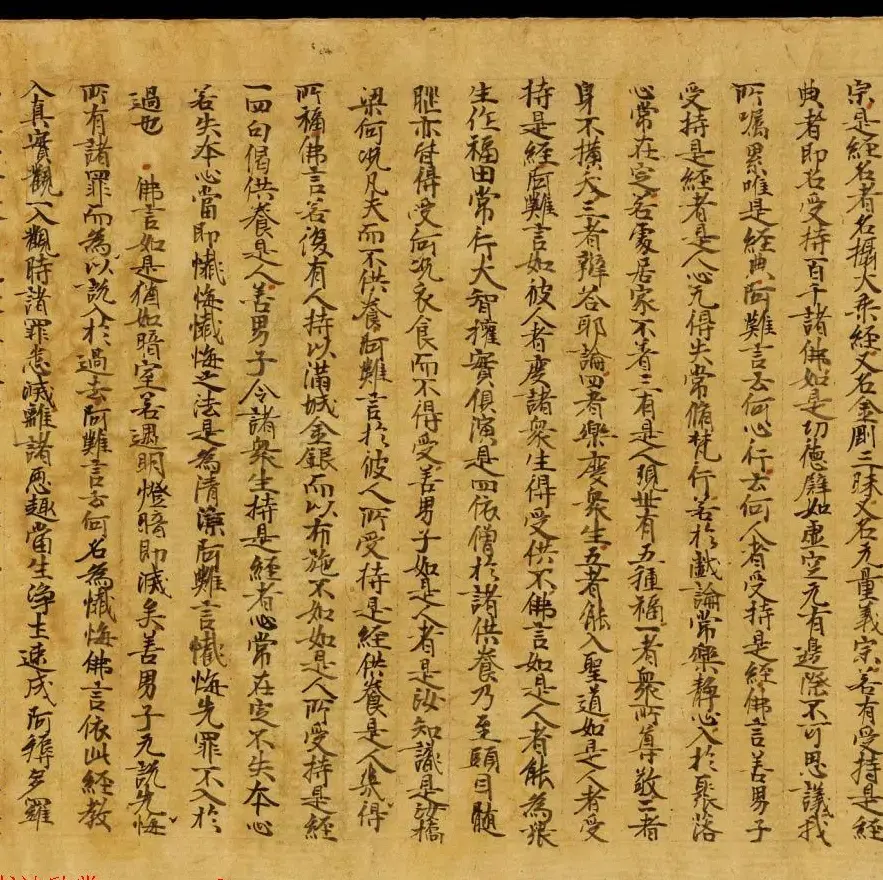 宗是經名者名攝大乘經又名金剛三昧又名无量義宗若有受持是經
典者即名受持百千諸佛如是功德譬如虛空无有邊際不可思議我
所囑累唯是經典阿難言云何心行云何人者受持是經佛言善男子
受持是經者是人心无得失常脩梵行若於戲論常樂靜心入於聚落
心常在定若處居家不著三有是人現世有五種福一者衆所尊敬二者
身不橫夭三者辯答耶論四者樂度衆生五者能入聖道如是人者受
持是經阿難言如彼人者度諸衆生得受供不佛言如是人者能為衆
生作福田常行大智權實俱演是四依僧於諸供養乃至頭目髓
腦亦皆得受何況衣食而不得受善男子如是人者是汝知識是汝橋
梁何況凡夫而不供養阿難言於彼人所受持是經供養是人幾得
所福佛言若復有人持以滿城金銀而以布施不如如是人所受持是經
一四句偈供養是人善男子令諸衆生持是經者心常在定不失本心
若失本心當即懺悔懺悔之法是為清涼阿難言懺悔先罪不入於
過也 佛言如是猶如暗室若遇明燈暗即滅矣善男子无說先悔
所有諸罪而為以說入於過去阿難言云何名為懺悔佛言依此經教
入真實觀一入觀時諸罪悉滅離諸惡趣當生淨土速成阿耨多羅